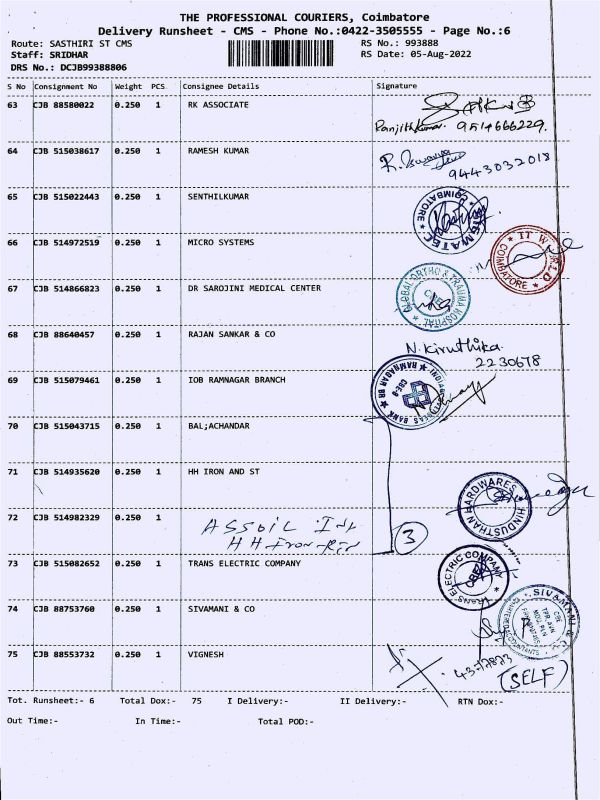 THE PROFESSIONAL COURIERS, Coimbatore
Delivery Runsheet - CMS - Phone No.:0422-3505555 - Page No.:6
Route: SASTHIRI ST CMS RS No.: 993888
Staff: SRIDHAR RS Date: 05-Aug-2022
DRS No.: DCJB99388806
S No Consignment No Weight PCS Consignee Details Signature
63 CJB 88580022 0.250 1 RK ASSOCIATE
Ranjithkumar. 9514666229.
64 CJB 515038617 0.250 1 RAMESH KUMAR
9443032018
65 CJB 515022443 0.250 1 SENTHILKUMAR
COIMBATORE
66 CJB 514972519 0.250 1 MICRO SYSTEMS
IT WORLD COIMBATORE
67 CJB 514866823 0.250 1 DR SAROJINI MEDICAL CENTER
GLOBAL ORTHO & TRAUMA HOSPITAL
68 CJB 88640457 0.250 1 RAJAN SANKAR & CO
N. Kiruthika.
2230678
69 CJB 515079461 0.250 1 IOB RAMNAGAR BRANCH
INDIAN OVERSEAS BANK RAMNAGAR BR CBE-9
70 CJB 515043715 0.250 1 BAL;ACHANDAR
71 CJB 514935620 0.250 1 HH IRON AND ST
HINDUSTHAN HARDWARES
72 CJB 514982329 0.250 1
3
73 CJB 515082652 0.250 1 TRANS ELECTRIC COMPANY
TRANS ELECTRIC COMPANY CBE
74 CJB 88753760 0.250 1 SIVAMANI & CO
SIVAMANI & CO CHARTERED ACCOUNTANTS
75 CJB 88553732 0.250 1 VIGNESH
(SELF)
Tot. Runsheet:- 6 Total Dox:- 75 I Delivery:- II Delivery:- RTN Dox:-
Out Time:- In Time:- Total POD:-